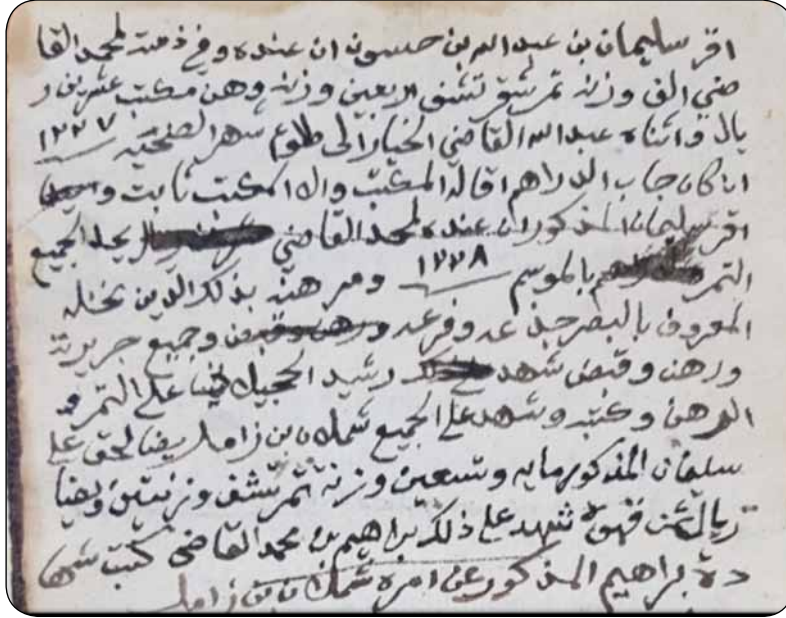 اقر سليمان بن عبدالله بن حسون ان عنده وفي ذمته لمحمد القا
ضي الف وزنه تمر شقر تشفى اربعين وزنه وهن مكتب عشرين ر
يال واثناه عبدالله القاضي الخيار الى طلوع شهر الضحيه ١٢٢٧
ان كان جاب الدراهم اقاله المكتب والا المكتب ثابت
اقر سليمان المذكور ان عنده لمحمد القاضي يحل الجميع
التمر بالموسم ١٢٢٨ ومرهنه بذلك الدين نخله
المعروف بالبصر جذعه وفرعه وجميع جريرته
ورهن وقبض شهد رشيد الحجيلان على التمر و
الرهن وكتبه وشهد على الجميع شملان بن زامل يضا لحق على
سليمان المذكور مايه وتسعين وزنة تمر تشفى وزنتين ويضا
ريال ثمن قهوة شهد على ذلك براهيم بن محمد القاضي كتب شها
دة براهيم المذكور عن امره شملان بن زامل